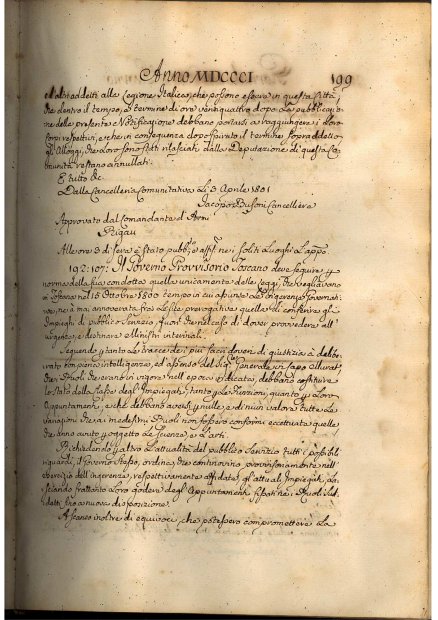 Anno MDCCCI 199
Militi addetti alla Legione Italica, che possono essere in questa Città,
che dentro il tempo, e termine di ore vantiquattro dopo la pubblicazio
ne della presente Notificazione debbano portarsi a raggiungere i Loro
corpi respettivi, e che in conseguenza dopo spirato il termine sopraddetto
gli Alloggi, che loro sono stati rilasciati dalla Deputazione di questa Co
munità restano annullati.
E tutto &c.
Dalla Cancelleria Comunitativa Li 3 Aprile 1801
Jacopo Cancelliere
Approvato dal Comandante d'Armi
Rigau
Alle ore 3 di sera è stato pubb:to e affis:o nei soliti Luoghi
192:107: Il Governo Provvisorio Toscano deve seguire per
norma della sua condotta quelle unicamente delle Leggi, che vegliavano
in Toscana nel 15 Ottobre 1800 tempo in cui
vi, nè à mai annoverata fra le sue prerogative quella di conferire gl'
Impieghi di pubblico Servizio fuori che nel caso di dover provvedere all'
urgenza, e destinare Ministri interinali.
Seguendo pertanto le tracce dei più sacri doveri di giustizia à delibe
rato con piena intelligenza, ed assenso del Sig:
che i Ruoli che erano in vigore nell'epoca indicata, debbano costituire
lo stato della Classe degl'Impiegati, tanto per le Funzioni, quanto per i Loro
Appuntamenti, e che debbano aversi per nulle, e di niun valore tutte le
variazioni che ai medesimi Ruoli non fossero conformi eccettuate quelle
che ànno avuto per oggetto le Scienze, e l'Arti.
Richiedendo per altro l'attualità del pubblico Servizio tutti i possibili
riguardi, il Governo stesso, ordina, che continovino provvisoriamente nell'
esercizio dell'ingerenza, respettivamente affidate gli attuali Impiegati, la
sciando frattanto loro godere degl'Appuntamenti fissati nei Ruoli sud
detti fino a nuova disposizione.
A scanso inoltre di equivoci, che potessero compromettere la